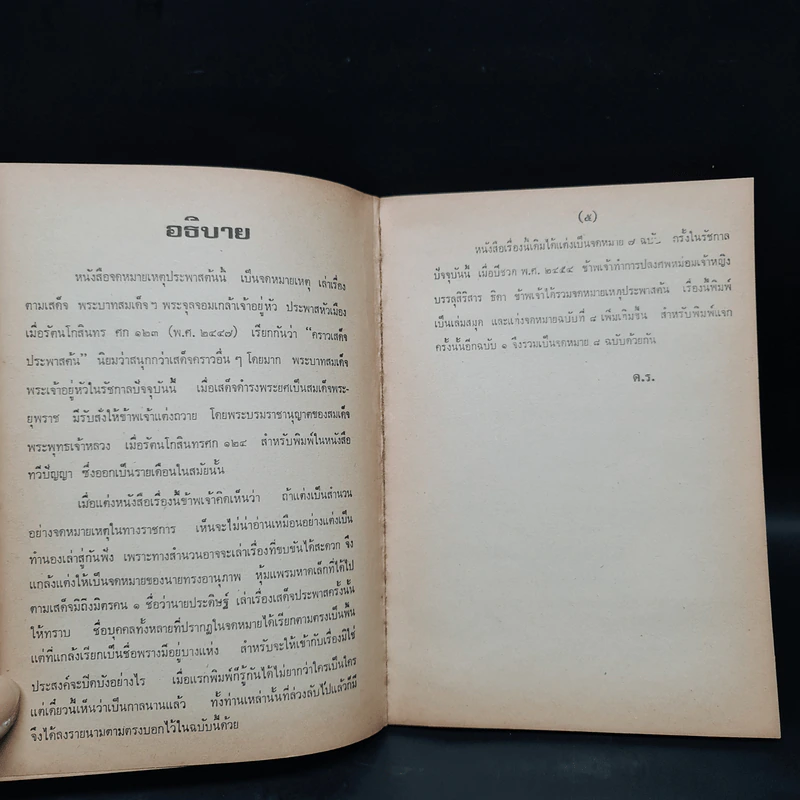 อธิบาย
หนังสือจดหมายเหตุประพาสต้นนี้ เป็นจดหมายเหตุ เล่าเรื่อง
ตามเสด็จ พระบาทสมเด็จฯ พระจุลจอมเกล้าเจ้าอยู่หัว ประพาสหัวเมือง
เมื่อรัตนโกสินทร ศก ๑๒๓ (พ.ศ. ๒๔๔๗) เรียกกันว่า “คราวเสด็จ
ประพาสต้น” นิยมว่าสนุกกว่าเสด็จคราวอื่น ๆ โดยมาก พระบาทสมเด็จ
พระเจ้าอยู่หัวในรัชกาลปัจจุบันนี้ เมื่อเสด็จดำรงพระยศเป็นสมเด็จพระ-
ยุพราช มีรับสั่งให้ข้าพเจ้าแต่งถวาย โดยพระบรมราชานุญาตของสมเด็จ
พระพุทธเจ้าหลวง เมื่อรัตนโกสินทรศก ๑๒๔ สำหรับพิมพ์ในหนังสือ
ทวีปัญญา ซึ่งออกเป็นรายเดือนในสมัยนั้น
เมื่อแต่งหนังสือเรื่องนี้ข้าพเจ้าคิดเห็นว่า ถ้าแต่งเป็นสำนวน
อย่างจดหมายเหตุในทางราชการ เห็นจะไม่น่าอ่านเหมือนอย่างแต่งเป็น
ทำนองเล่าสู่กันฟัง เพราะทางสำนวนอาจจะเล่าเรื่องที่ขบขันได้สะดวก จึง
แกล้งแต่งให้เป็นจดหมายของนายทรงอานุภาพ หุ้มแพรมหาดเล็กที่ได้ไป
ตามเสด็จมีถึงมิตรคน ๑ ชื่อว่านายประดิษฐ์ เล่าเรื่องเสด็จประพาสครั้งนั้น
ให้ทราบ ชื่อบุคคลทั้งหลายที่ปรากฏในจดหมายได้เรียกตามตรงเป็นพื้น
แต่ที่แกล้งเรียกเป็นชื่อพรางมีอยู่บางแห่ง สำหรับจะให้เข้ากับเรื่องมิใช่
ประสงค์จะปิดบังอย่างไร เมื่อแรกพิมพ์ก็รู้กันได้ไม่ยากว่าใครเป็นใคร
แต่เดี๋ยวนี้เห็นว่าเป็นกาลนานแล้ว ทั้งท่านเหล่านั้นที่ล่วงลับไปแล้วก็มี
จึงได้ลงรายนามตามตรงบอกไว้ในฉบับนี้ด้วย
(๕)
หนังสือเรื่องนี้เดิมได้แต่งเป็นจดหมาย ๗ ฉบับ ครั้งในรัชกาล
ปัจจุบันนี้ เมื่อปีชวด พ.ศ. ๒๔๕๔ ข้าพเจ้าทำการปลงศพหม่อมเจ้าหญิง
บรรลุสิริสาร ธิดา ข้าพเจ้าได้รวมจดหมายเหตุประพาสต้น เรื่องนี้พิมพ์
เป็นเล่มสมุด และแต่งจดหมายฉบับที่ ๘ เพิ่มเติมขึ้น สำหรับพิมพ์แจก
ครั้งนั้นอีกฉบับ ๑ จึงรวมเป็นจดหมาย ๘ ฉบับด้วยกัน
ด.ร.